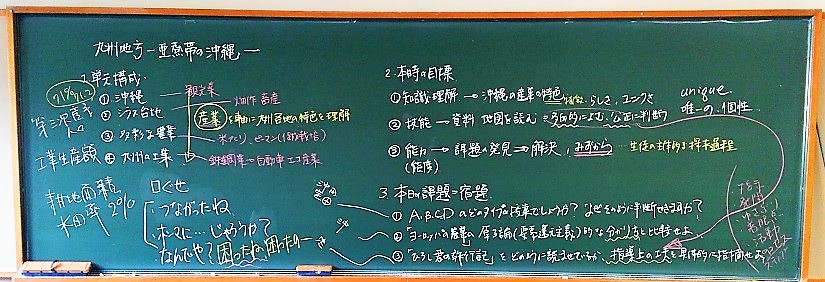 九州地方 ー亜熱帯の沖縄ー
1. 単元構成
① 沖縄 ー 観光業
② シラス台地 畑作 畜産
産業を軸に九州各地の特色を理解
③ 多彩な農業
米づくり、ピーマン(促成栽培)
④ 九州の工業
鉄鋼業→自動車 エコ産業
第三次産業
工業生産額
耕地面積
水田率 2%
口ぐせ
・つながったね
・ホンマに…じゃろうか?
・なんでや? 困ったね困ったのー
2. 本時の目標
① 知識・理解 → 沖縄の産業の特色 らしさ、ユニークさ
unique
唯一の、個性
② 技能 → 資料 地図を読む → 多面的によむ、公正に判断
③ 能力 → 課題の発見 → 解決、みずから … 生徒の主体的な探求過程
(態度)
3. 本日の課題=宿題
① A,B,C,Dのどのタイプの授業でしょうか? なぜそのように判断できますか?
② 「ヨーロッパの農業」の原子論(要素還元主義)的な分かり方と比較せよ
③ 「ひろし君の旅行記」をどのように読ませているか、指導上の工夫を具体的に指摘せよ